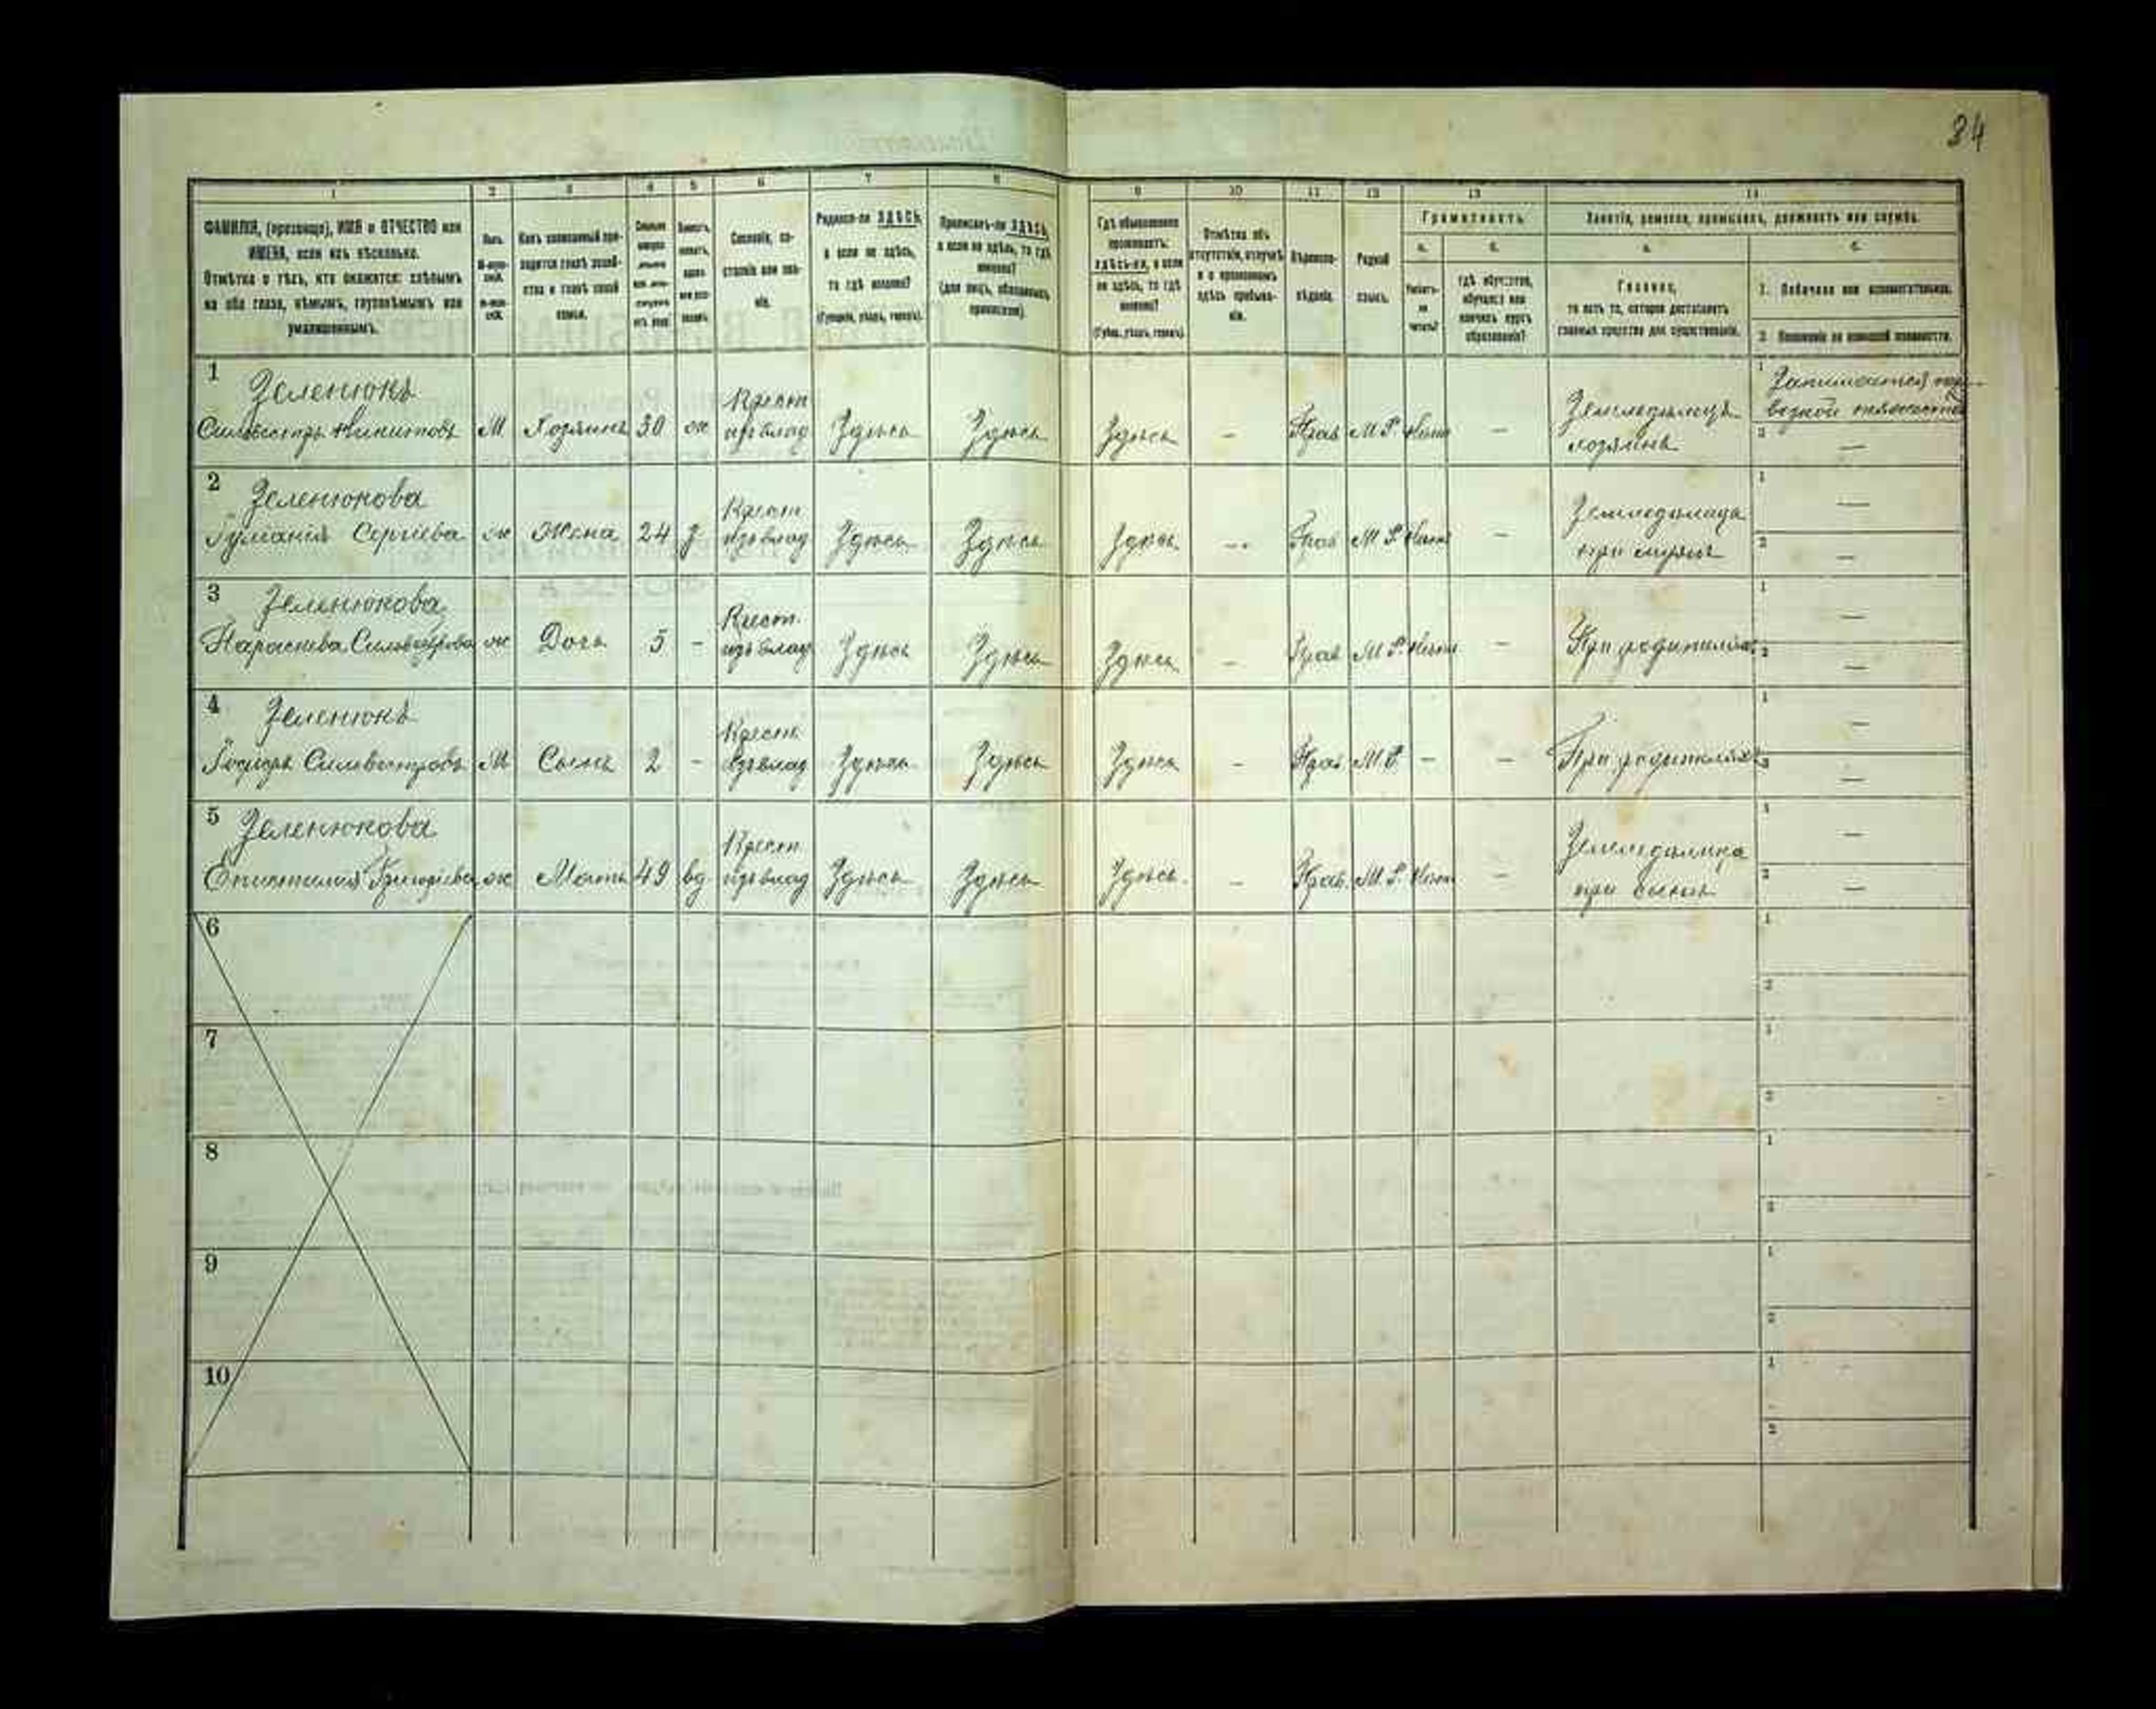 34
1 2 3 4 5 6 7 8 9 10 11 12 13 14
ФАМИЛІЯ, (прозвище), ИМЯ и ОТЧЕСТВО или
ИМЕНА, если ихъ нѣсколько.
Отмѣтка о тѣхъ, кто окажется: слѣпымъ
на оба глаза, нѣмымъ, глухонѣмымъ или
умалишеннымъ.
Полъ.
Какъ записанный при-
ходится главѣ хозяй-
ства и главѣ своей
семьи.
Сословіе, со-
стояніе или зва-
ніе.
Родился-ли ЗДѢСЬ,
а если не здѣсь,
то гдѣ именно?
(Губернія, уѣздъ, городъ).
Приписанъ-ли ЗДѢСЬ,
а если не здѣсь, то гдѣ
именно?
(для лицъ, обязанныхъ
припискою).
Гдѣ обыкновенно
проживаетъ:
здѣсь-ли, а если
не здѣсь, то гдѣ
именно?
(Губ., уѣздъ, городъ).
Отмѣтка объ
отсутствіи, отлучкѣ
и о временномъ
здѣсь пребыва-
ніи.
Вѣроиспо-
вѣданіе.
Родной
языкъ.
Грамотность.
а. б.
Умѣетъ-
ли
читать?
гдѣ обучается,
обучался или
кончилъ курсъ
образованія?
Занятіе, ремесло, промыселъ, должность или служба.
а. б.
Главное,
то есть то, которое доставляетъ
главныя средства для существованія.
1. Побочное или вспомогательное.
2. Положеніе по воинской повинности.
1 Зеленюкъ
Сильвестръ Никитовъ М Хозяинъ 30 ж Крест. изъ влад Здѣсь Здѣсь Здѣсь - Прав М Р. Нѣтъ - Земледѣлецъ хозяинъ
1 Занимается
2 —
2 Зеленюкова
Сергіева ж Жена 24 з Крест изъ влад Здѣсь Здѣсь Здѣсь - Прав М Р Нѣтъ - Земледѣлица при мужѣ
1 —
2 —
3 Зеленюкова
Параскева Сильвестрова ж Дочь 5 - Крест. изъ влад Здѣсь Здѣсь Здѣсь - Прав М Р. Нѣтъ - При родителяхъ
1 —
2 —
4 Зеленюкъ
Сильвестровъ М Сынъ 2 - Крест изъ влад Здѣсь Здѣсь Здѣсь - Прав М.Р. - - При родителяхъ
1 —
2 —
5 Зеленюкова
Григорьева ж Мать 49 вд Крест. изъ влад Здѣсь Здѣсь Здѣсь - Прав. М. Р. Нѣтъ - Земледѣлица при сынѣ
1 —
2 —
6 1
2
7 1
2
8 1
2
9 1
2
10 1
2